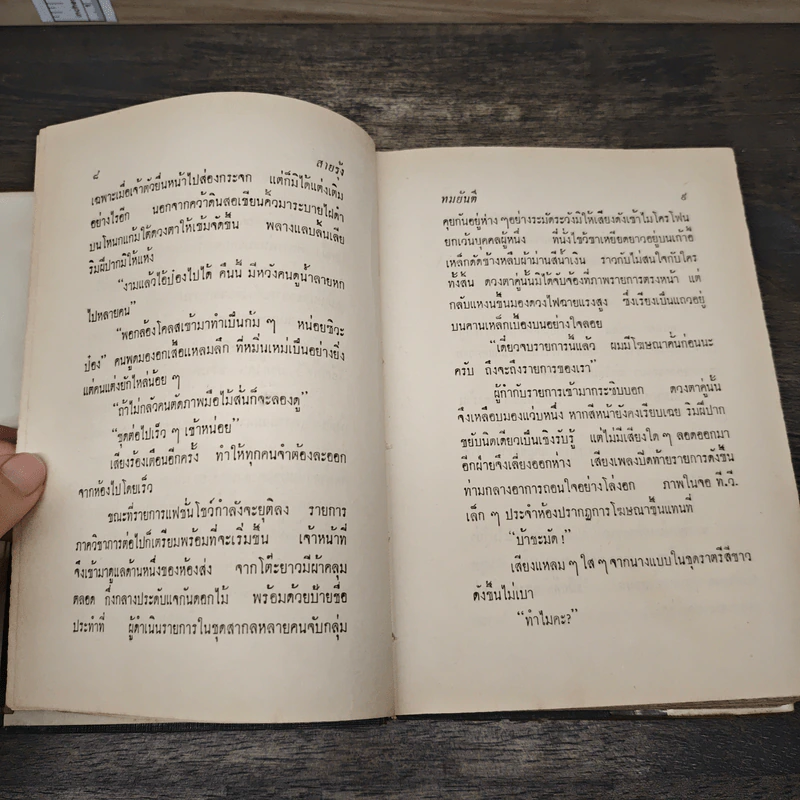 ๘
สายรุ้ง
เฉพาะเมื่อเจ้าตัวยื่นหน้าไปส่องกระจก แต่ก็มิได้แต่งเติม
อย่างไรอีก นอกจากคว้าดินสอเขียนคิ้วมาระบายไฝดำ
บนโหนกแก้มใต้ดวงตาให้เข้มจัดขึ้น พลางแลบลิ้นเลีย
ริมฝีปากมิให้แห้ง
“งามแล้วไอ้ป๋องไปได้ คืนนี้ มีหวังคนดูน้ำลายหก
ไปหลายคน”
“พอกล้องโคลสเข้ามาทำเป็นก้ม ๆ หน่อยซิวะ
ป๋อง” คนพูดมองอกเสื้อแหลมลึก ที่หมิ่นเหม่เป็นอย่างยิ่ง
แต่คนแต่งยักไหล่น้อย ๆ
“ถ้าไม่กลัวคนตัดภาพมือไม้สั่นก็จะลองดู”
“ชุดต่อไปเร็ว ๆ เข้าหน่อย”
เสียงร้องเตือนอีกครั้ง ทำให้ทุกคนจำต้องละออก
จากห้องไปโดยเร็ว
ขณะที่รายการแฟชั่นโชว์กำลังจะยุติลง รายการ
ภาควิชาการต่อไปก็เตรียมพร้อมที่จะเริ่มขึ้น เจ้าหน้าที่
จึงเข้ามาดูแลด้านหนึ่งของห้องส่ง จากโต๊ะยาวมีผ้าคลุม
ตลอด กึ่งกลางประดับแจกันดอกไม้ พร้อมด้วยป้ายชื่อ
ประจำที่ ผู้ดำเนินรายการในชุดสากลหลายคนจับกลุ่ม
ทมยันตี
๙
คุยกันอยู่ห่าง ๆ อย่างระมัดระวังมิให้เสียงดังเข้าไมโครโฟน
ยกเว้นบุคคลผู้หนึ่ง ที่นั่งไขว้ขาเหยียดยาวอยู่บนเก้าอี้
เหล็กดัดข้างหลืบผ้าม่านสีน้ำเงิน ราวกับไม่สนใจกับใคร
ทั้งสิ้น ดวงตาคู่นั้นมิได้จับจ้องที่ภาพรายการตรงหน้า แต่
กลับแหงนขึ้นมองดวงไฟฉายแรงสูง ซึ่งเรียงเป็นแถวอยู่
บนคานเหล็กเบื้องบนอย่างใจลอย
“เดี๋ยวจบรายการนี้แล้ว ผมมีโฆษณาคั่นก่อนนะ
ครับ ถึงจะถึงรายการของเรา”
ผู้กำกับรายการเข้ามากระซิบบอก ดวงตาคู่นั้น
จึงเหลือบมองแวบหนึ่ง หากสีหน้ายังคงเรียบเฉย ริมฝีปาก
ขยับนิดเดียวเป็นเชิงรับรู้ แต่ไม่มีเสียงใด ๆ ลอดออกมา
อีกฝ่ายจึงเลี่ยงออกห่าง เสียงเพลงปิดท้ายรายการดังขึ้น
ท่ามกลางอาการถอนใจอย่างโล่งอก ภาพในจอ ที.วี.
เล็ก ๆ ประจำห้องปรากฏการโฆษณาขึ้นแทนที่
“บ้าชะมัด !”
เสียงแหลม ๆ ใส ๆ จากนางแบบในชุดราตรีสีขาว
ดังขึ้นไม่เบา
“ทำไมคะ?”